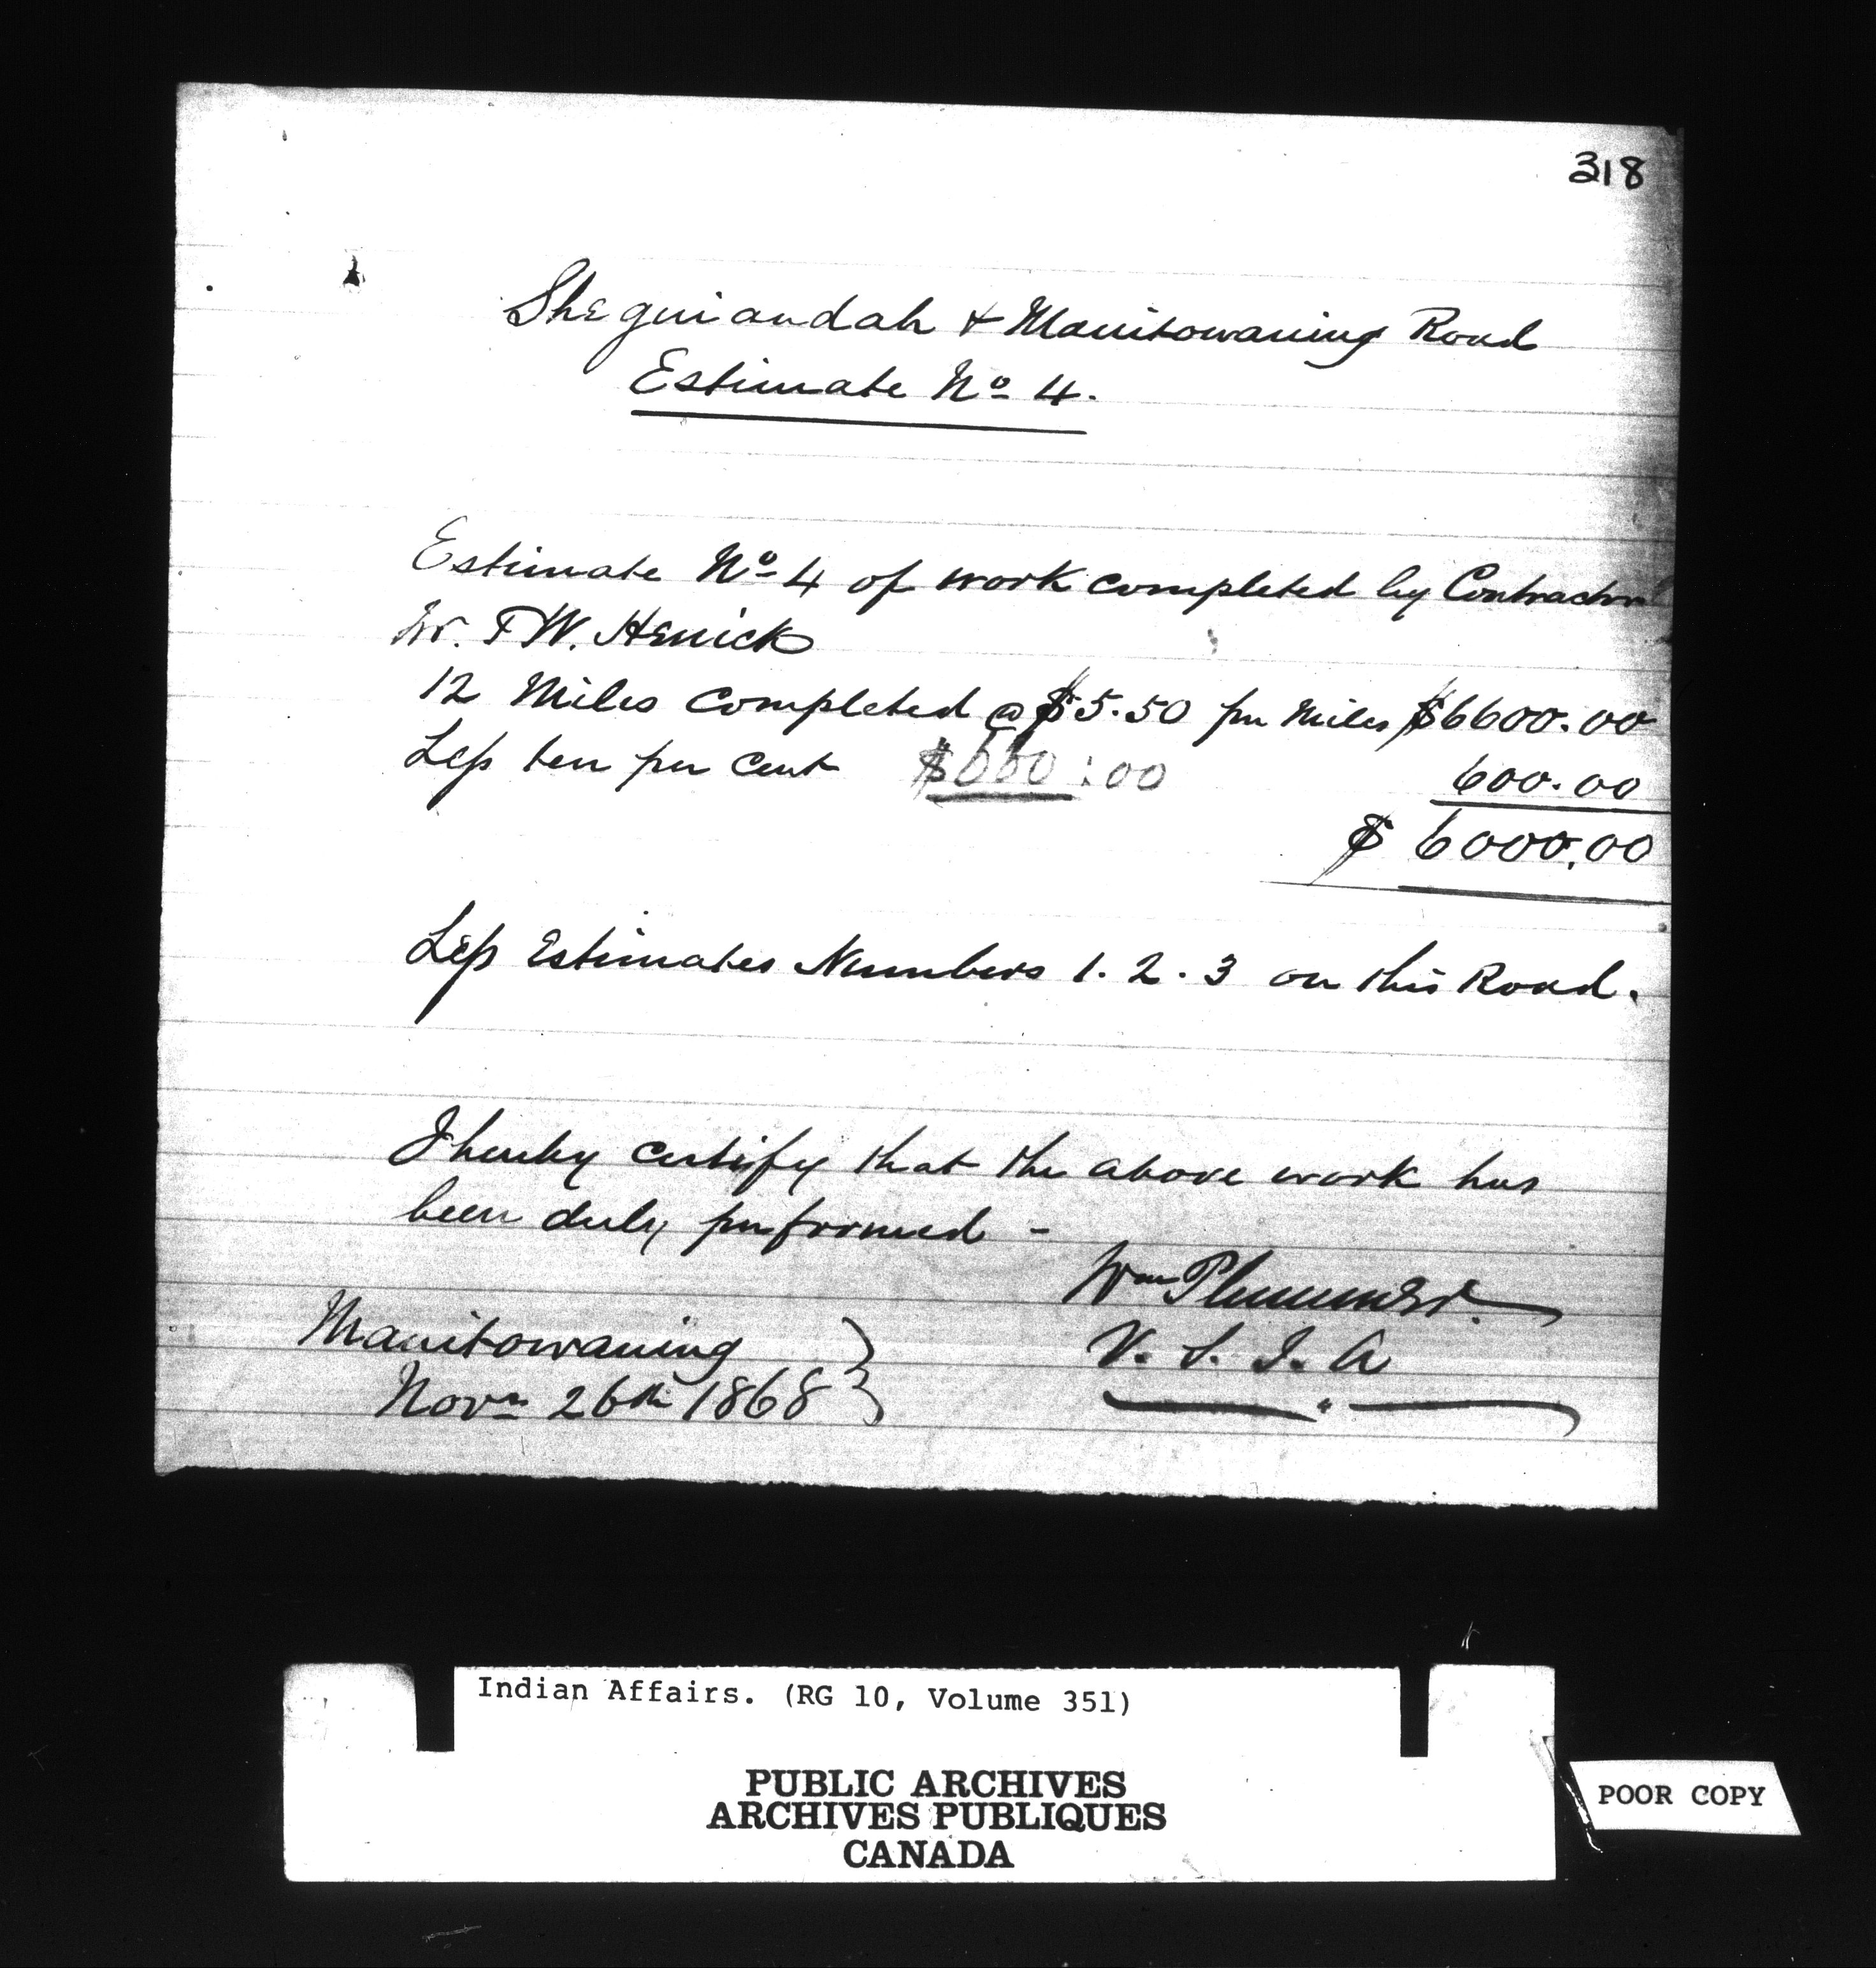 318
Sheguiandah & Manitowaning Road
Estimate No 4.
Estimate No 4 of work completed by Contractor
Mr. F W. Herrick
12 Miles Completed @ $5.50 per Miles $6600.00
Less ten per cent $660:00 600.00
$ 6000.00
Less Estimates Numbers 1. 2. 3 on this Road.
I hereby certify that the above work has
been duly performed -
Wm Plummer
V. S. I. A
Manitowaning
Novr 26th 1868
Indian Affairs. (RG 10, Volume 351)
PUBLIC ARCHIVES
ARCHIVES PUBLIQUES
CANADA
POOR COPY